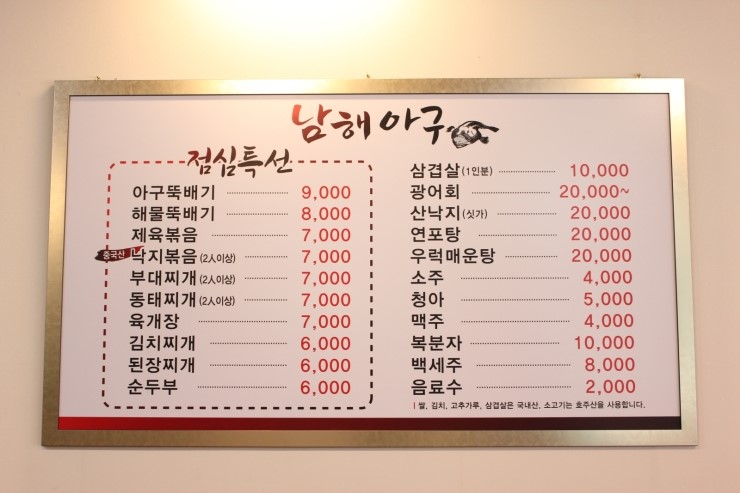 남해아구
점심특선
아구뚝배기 9,000
해물뚝배기 8,000
제육볶음 7,000
중국산 낙지볶음(2人이상) 7,000
부대찌개(2人이상) 7,000
동태찌개(2人이상) 7,000
육개장 7,000
김치찌개 6,000
된장찌개 6,000
순두부 6,000
삼겹살(1인분) 10,000
광어회 20,000~
산낙지(싯가) 20,000
연포탕 20,000
우럭매운탕 20,000
소주 4,000
청아 5,000
맥주 4,000
복분자 10,000
백세주 8,000
음료수 2,000
쌀, 김치, 고추가루, 삼겹살은 국내산, 소고기는 호주산을 사용합니다.